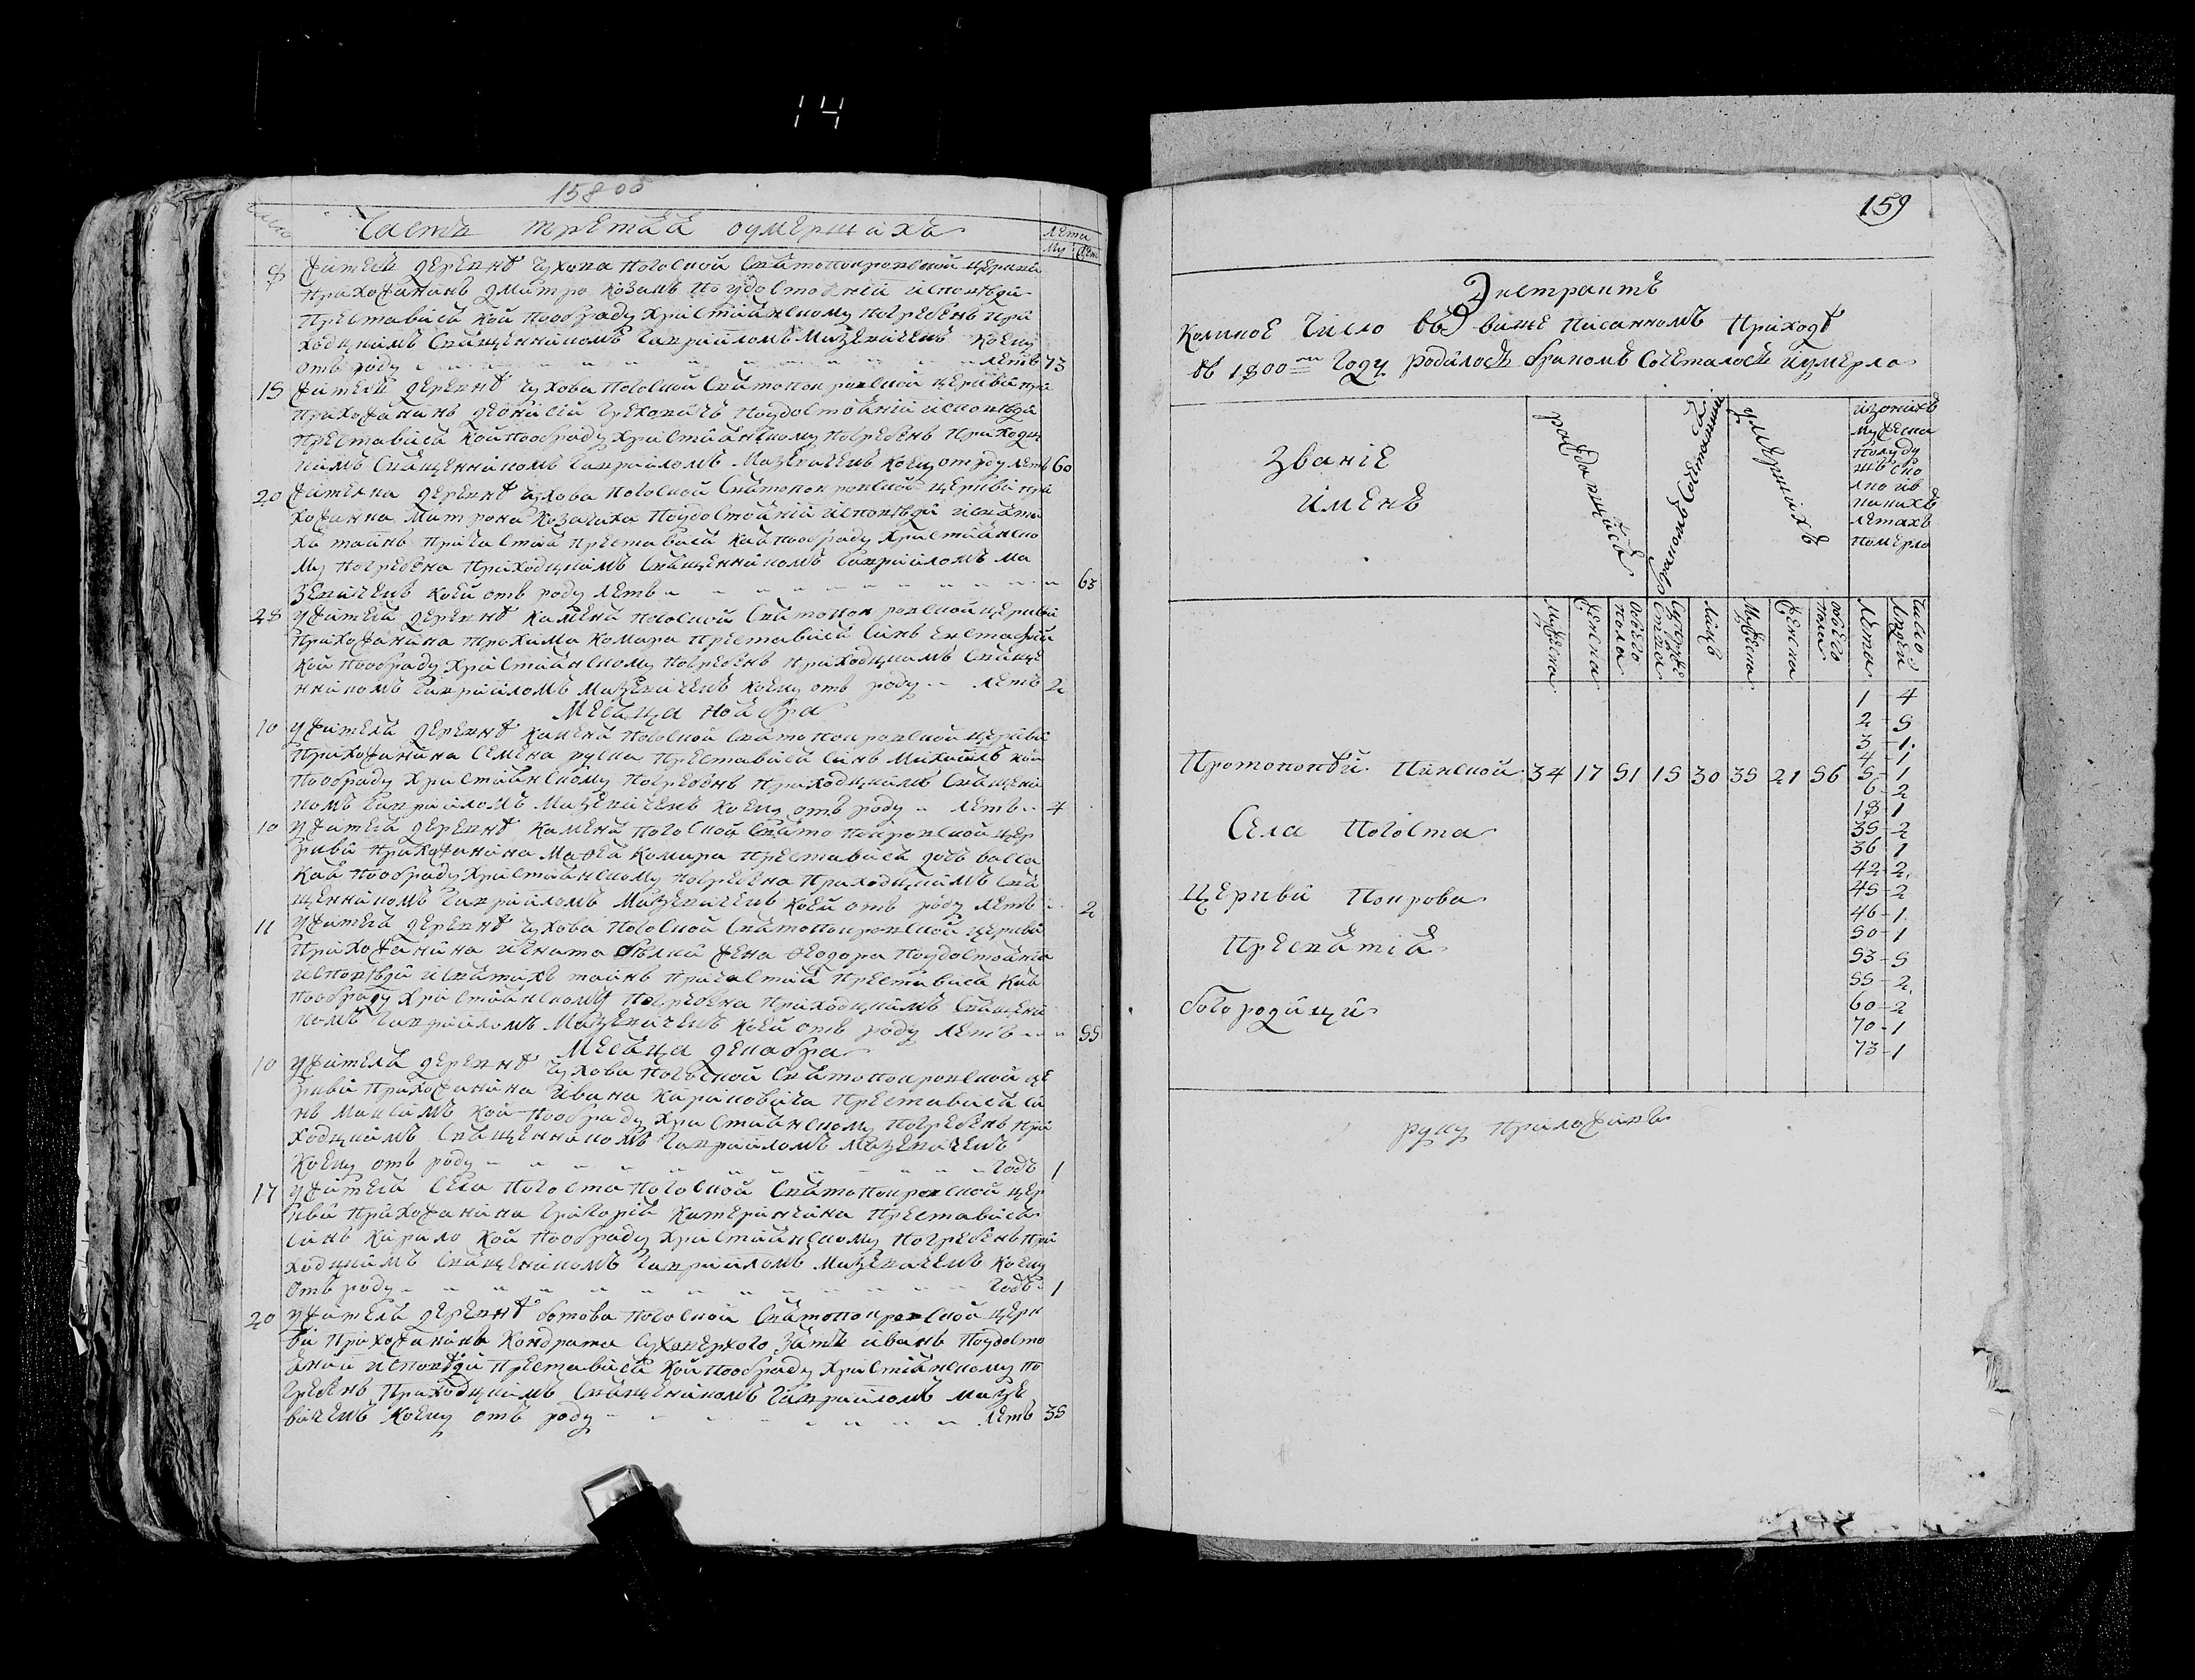 14
158об
Часть третая оумершихъ
Лета
Му Жен
8 Житель деревнѣ Чухова Погоской Святопокровской церкви
Прихожанинъ Дмитро Козакъ По удостоянїи исповѣди
Преставися кой пообраду христианскому погребенъ при
ходскимъ Священникомъ Гаврииломъ Мазевичемъ коему
отъ роду летъ 73
15 Житель деревнѣ Чухова Погоской Святопокровской церкви при
Прихожанинъ Деонисїй Грехович Поудостоянїи исповѣди
Преставися кой пообраду христианскому погребенъ Приходс
кимъ Священникомъ Гаврииломъ Мазевичемъ коему отроду летъ 60
20 Жителка деревнѣ Чухова Погоской Святопокровской церкви при
хожанка Матрона Козачиха Поудостоянїи исповѣди и святи
хъ таинъ Причастия преставися кая пообраду христианско
му погребена Приходскимъ Священникомъ Гаврииломъ Ма
зевичемъ коей отъ роду летъ 63
28 У Жителя деревнѣ Каменя Погоской Святопокровской церкви
Прихожанина Трохима Комара Преставися синъ Евстафий
кой пообраду христианскому погребенъ Приходскимъ Свяще
нникомъ Гаврииломъ Мазевичемъ коему отъ роду летъ 2
Месяца ноября
10 У Жителя деревнѣ Каменя Погоской Святопокровской церкви
Прихожанина Семена Преставися синъ Михаилъ кой
пообраду христианскому погребенъ Приходскимъ Священи
комъ Гаврииломъ Мазевичемъ коему отъ роду летъ 4
10 У Жителя деревнѣ Каменя Погоской Свято покровской цер
кви Прихожанина Матѳея Комара Преставися дочь Васса
кая пообраду христианскому погребена Приходскимъ Свя
щенникомъ Гаврииломъ Мазевичемъ коей отъ роду летъ 2
11 У Жителя деревнѣ Чухова Погоской Святопокровской церкви
Прихожанина Игната жена Ѳеодора Поудостоянїи
исповѣди и святихъ таинъ Причастия Преставися кая
пообраду христианскому погребена Приходскимъ Священи
комъ Гаврииломъ Мазевичемъ коей отъ роду летъ 55
Месяца декабря
10 У Жителя деревнѣ Чухова Погоской Святопокровской це
ркви Прихожанина Ивана Карповича Преставися си
нъ Максимъ кой пообраду христианскому погребенъ при
ходскимъ Священникомъ Гаврииломъ Мазевичемъ
коему отъ роду годъ 1
17 У Жителя села Погоста Погоской Святопокровской цер
кви Прихожанина Григорїя Преставися
синъ Кирило кой пообраду христианскому погребенъ при
ходскимъ Священикомъ Гаврииломъ Мазевичемъ коему
отъ роду годъ 1
20 У Жителя деревнѣ Ботова Погоской Святопокровской церк
ви Прихожанина Кондрата зять Иванъ Поудосто
янїи исповѣди Преставися кой пообраду христианскому по
гребенъ Приходскимъ Священикомъ Гаврииломъ Мазе
вичемъ коему отъ роду летъ 35
159
Экстрактъ
Коликое число въ више писанномъ Приходѣ
въ 1800м году родилось бракомъ сочеталось и умерло
Званїе
именъ
рождашихся
бракомъ сочеташих
умершихъ
из онихъ
мужеска
полу ду
шъ ско
лко и в
какихъ
летахъ
померло
мужеска
женска
обоего пола
лицъ
мужеска
женска
обоего пола
лета
число людей
Протопопѣи Пинской 34 17 51 15 30 35 21 56
Села Погоста
церкви Покрова
Пресвятїя
богородици
1 - 4
2 - 5
3 - 1
4 - 1
5 - 1
6 - 2
18 - 1
35 - 2
36 - 1
42 - 2
45 - 2
46 - 1
50 - 1
53 - 5
55 - 2
60 - 2
70 - 1
73 - 1
руку приложилъ